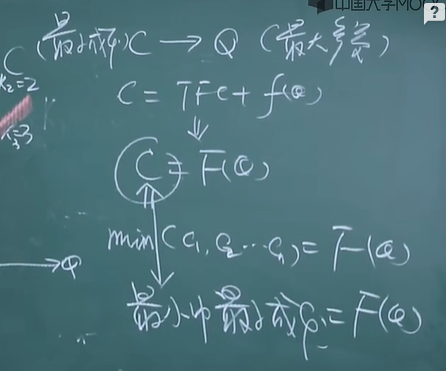 中国大学MOO
C (最小成本) C → Q (最大产量)
k₂=2
C = TFC + f(Q)
=3
⇓
C = F(Q)
min(C₁, C₂ ⋯ Cₙ) = F(Q)
→ Q
最小中最小成本 = F(Q)